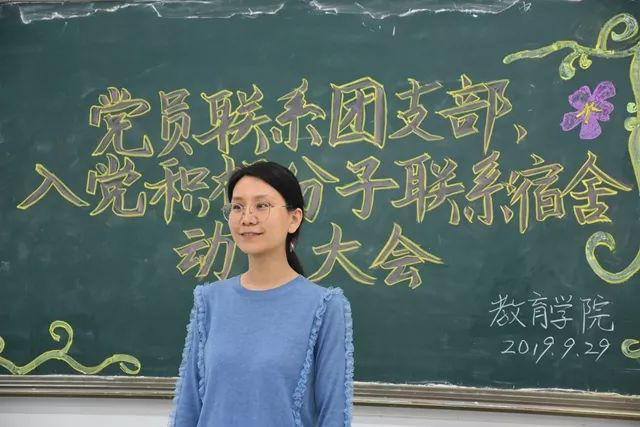 党员联系团支部、
入党积极分子联系宿舍
动 大会
教育学院
2019.9.29